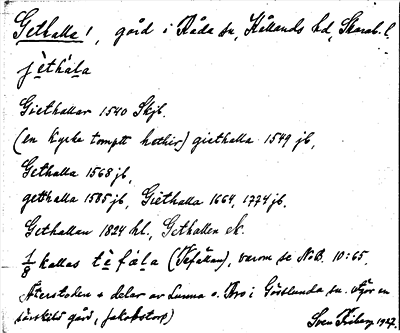 Gethalla!, gård i Råda sn, Kållands hd, Skarab. l.
jèthàla
Giethallar 1540 Skjb.
(en kyrke tomptt hethir) giethalla 1549 jb,
Gethalla 1568 jb,
getthalla 1585 jb, Giethalla 1664, 1774 jb.
Gethallan 1824 hl., Gethallen
1/8 kallas tèfàla (Tefällan), varom se NoB. 10:65.
Återstoden + delar av Lunna o. Bro i Göslunda sn. utgör en
särskild gård, Jakobstorp)
Ivar 1927.